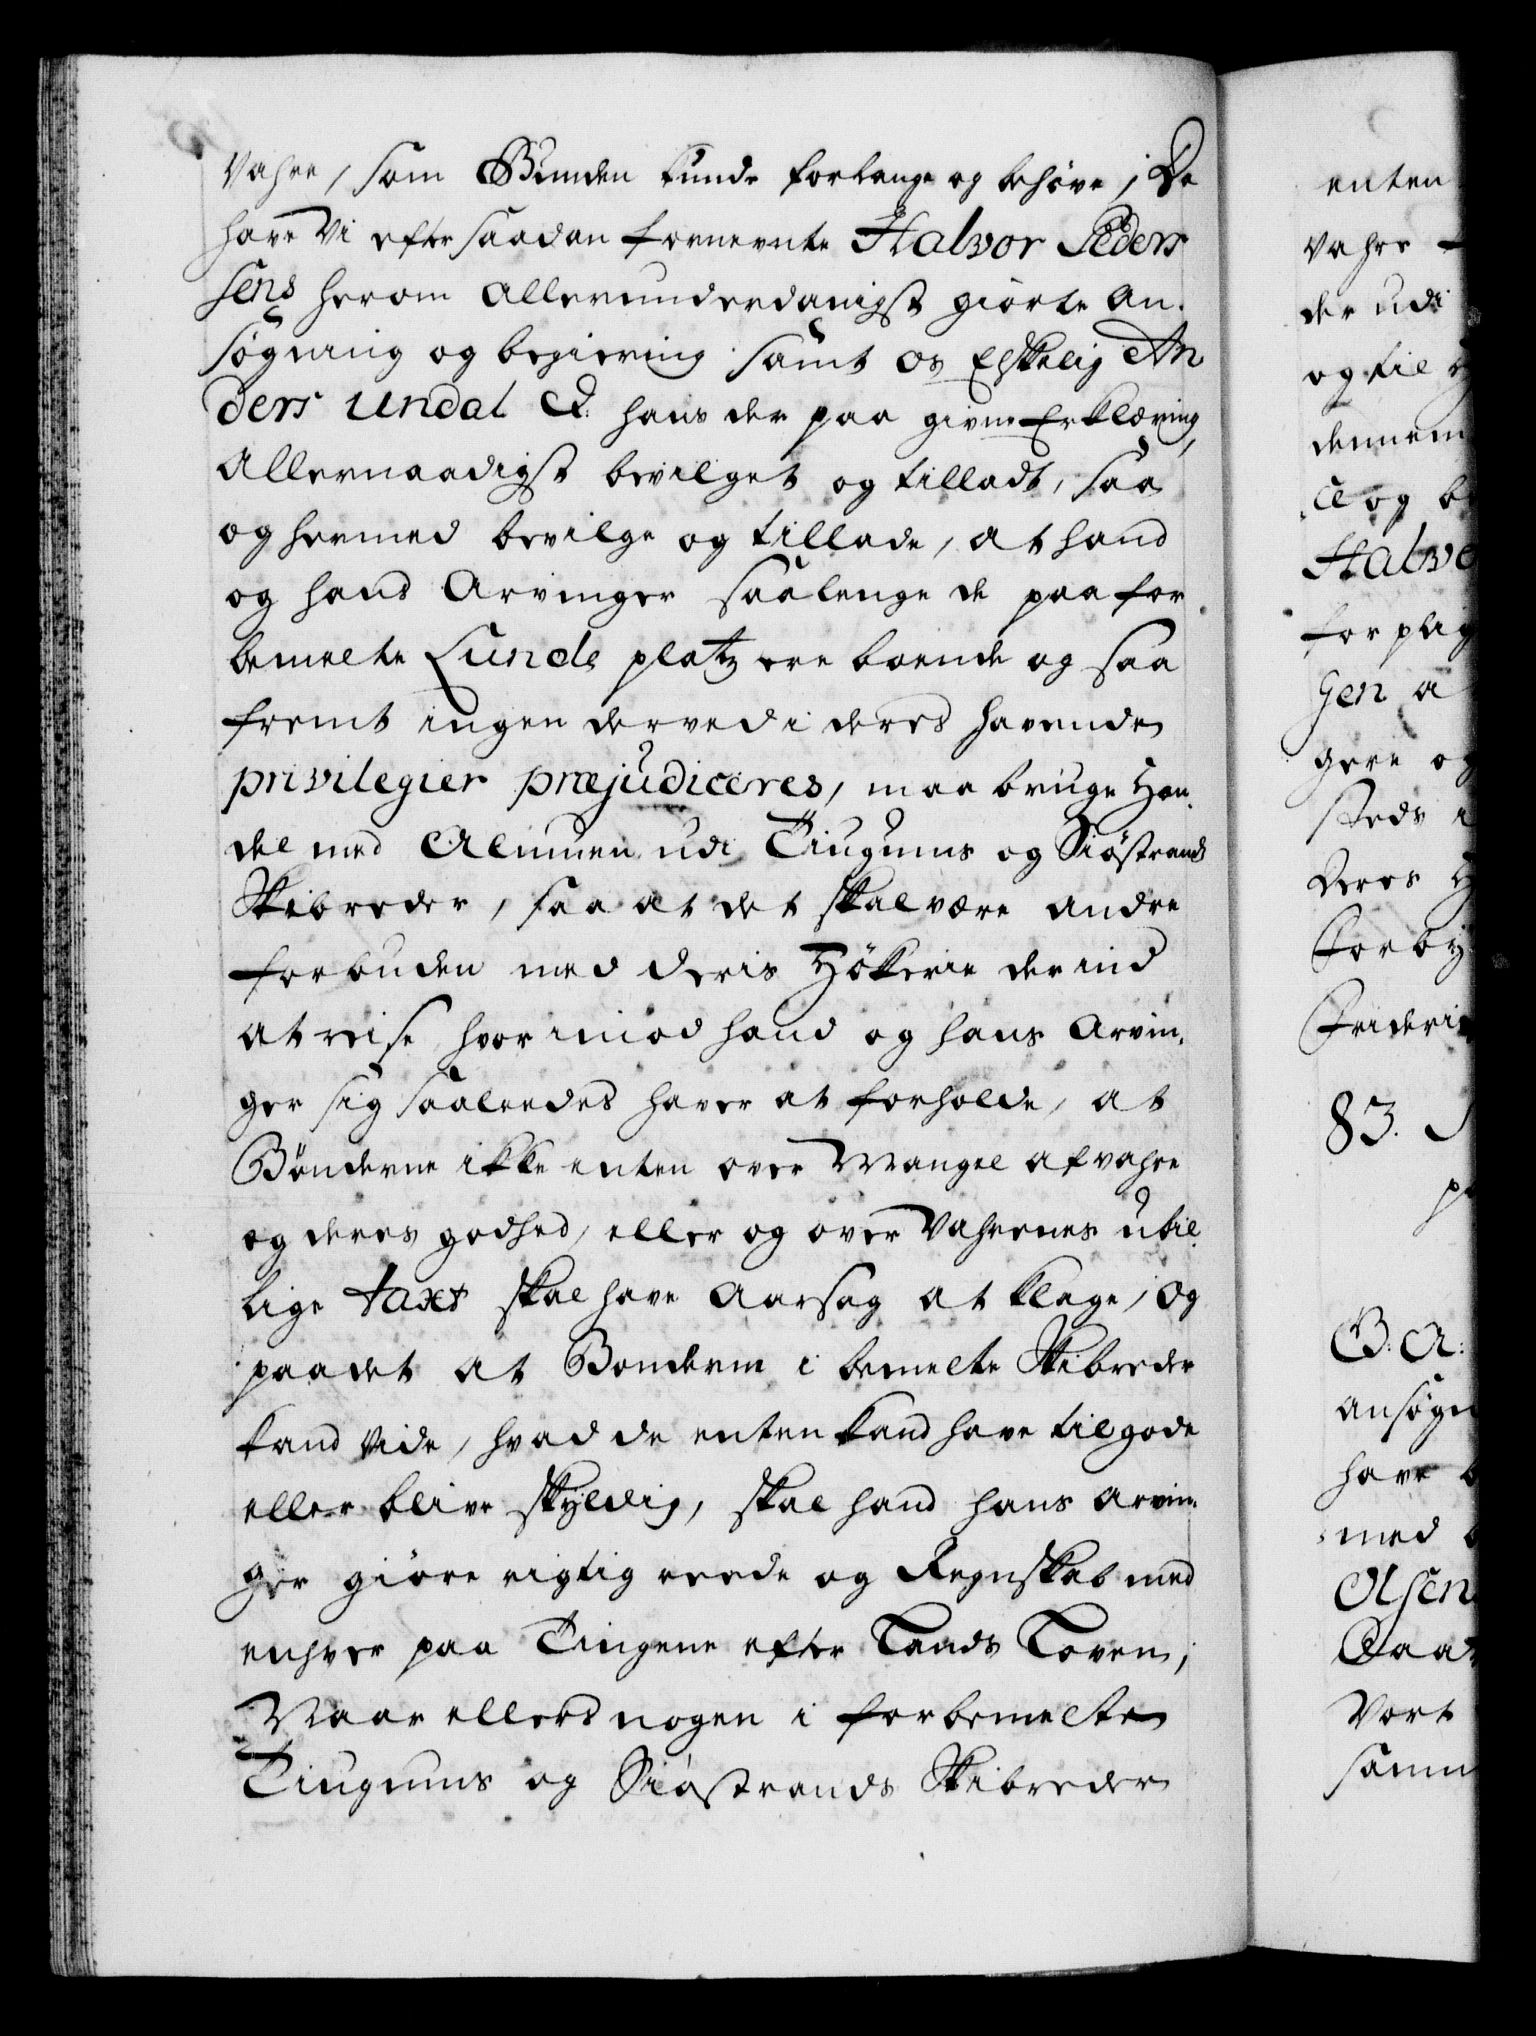 Vahre, som Bunden kunde forlange og behøve; Da
have Vi efter saadan fornevnte Halvor Peders
sens herom allerunderdanigst giorte An-
søgning og begiering samt os Elskelig An
ders Undal &: hans der paa givne Erklæring,
Allernaadigst bevilget og tilladt, saa
og hermed bevilge og tillade, at hand
og hans Arvinger saalenge de paa for
bemelte Lunde platz ere boende og saa
fremt ingen derved i deres havende
privilegier præjudiceres, maa bruge Han-
del med Almuen udi Tiugums og Siøstrands
Skibreder, saa at det skal være andre
forbuden med deris Høkerie der ind
at reise, hvorimod hand og hans Arvin-
ger sig saaledes haver at forholde, at
Bønderne ikke enten over Mangel af vahre
og deres godhed, eller og over Vahrenes ubil-
lige taxt skal have Aarsag at klage, Og
paadet at Bonderne i bemelte Skibreder
kand Vide, hvad de enten kand have til gode
eller blive skyldig, skal hand hans Arvin-
ger giøre rigtig reede og Regnskab med
enhver paa Tingene efter Lands Loven,
Naar ellers nogen i forbemelte
Tiugums og Siøstrands Skibreder
enten
Vahre
der udi
og til
dennem
og
Halvo
for plig
gen a
gere og
steds
deres
Forby
Frideri
83.
G: A:
ansøgn
have
med
Olsen
Vort
samm